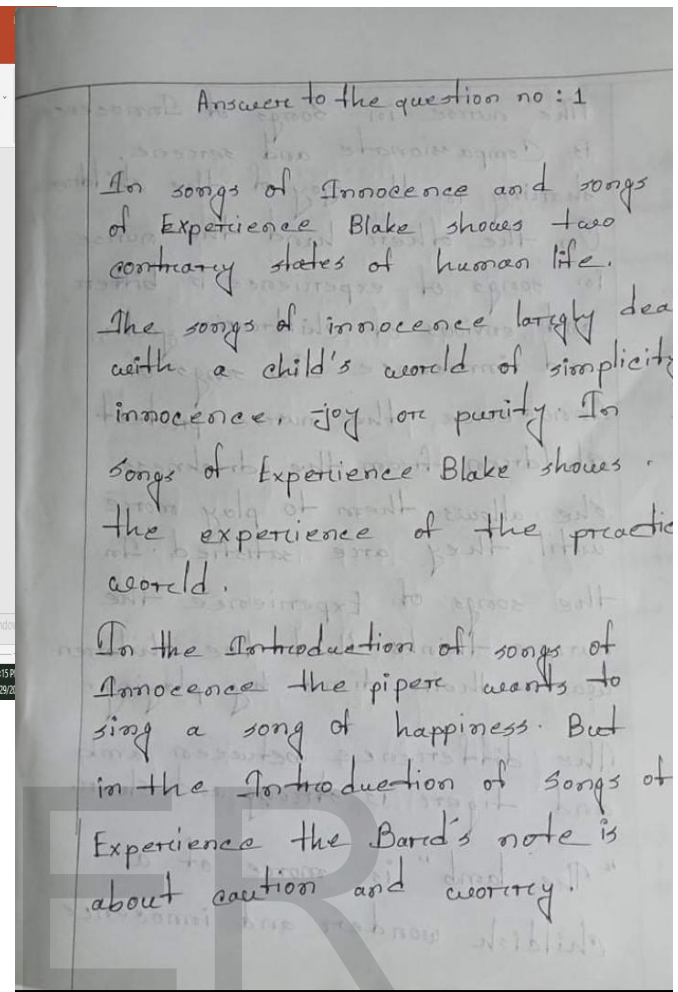 Answer to the question no : 1
In songs of Innocence and songs
of Experience Blake shows two
contrary states of human life.
The songs of innocence largly dea
with a child's world of simplicity
innocence, joy or purity. In
songs of Experience Blake shows
the experience of the practic
world.
In the Introduction of songs of
Innocence the piper wants to
sing a song of happiness. But
in the Introduction of songs of
Experience the Bard's note is
about caution and worry.
ER